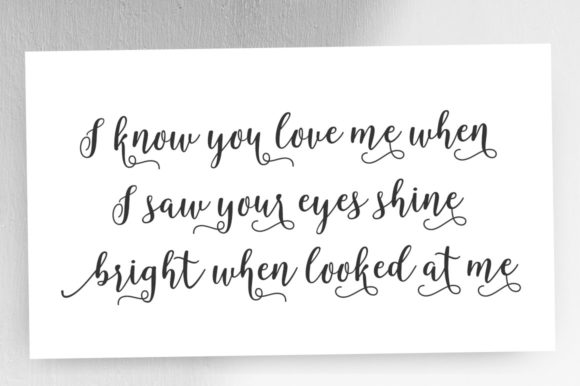 I know you love me when
I saw your eyes shine
bright when looked at me